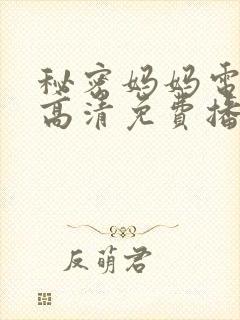 秘密妈妈电
高清免费播
反萌君